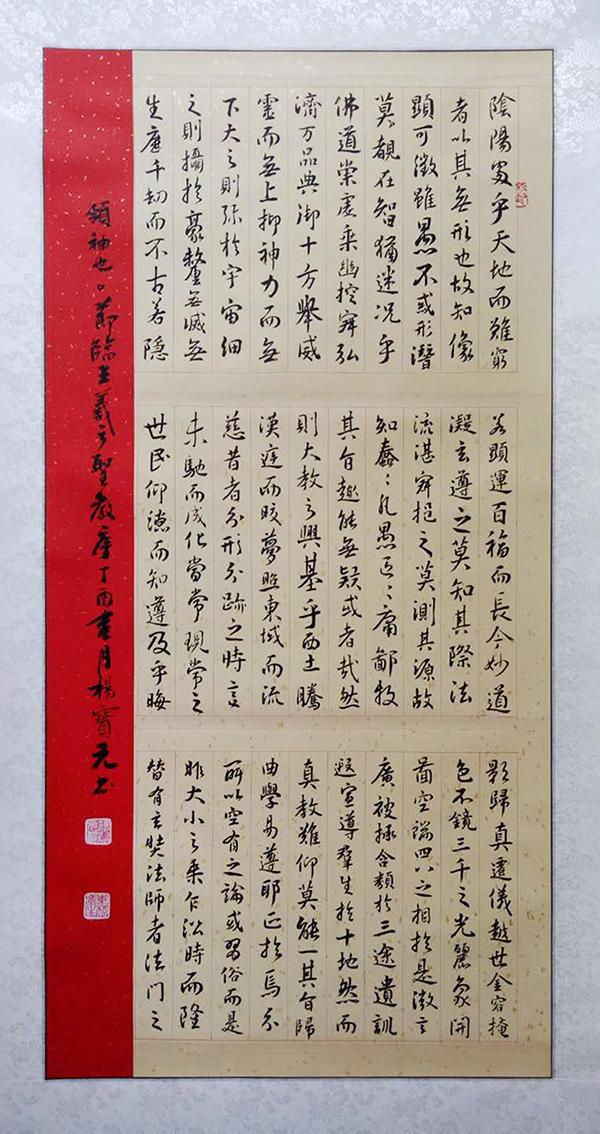 陰陽處乎天地而難窮
者以其無形也故知像
顯可徵雖愚不或形潛
莫覩在智猶迷况乎
佛道崇虛乘幽控寂弘
濟万品典御十方舉威
靈而無上抑神力而無
下大之則弥於宇宙細
之則攝於豪釐無滅無
生歷千劫而不古若隱
若顯運百福而長今妙道
凝玄遵之莫知其際法
流湛寂挹之莫測其源故
知蠢々凡愚區々庸鄙投
其旨趣能無疑或者哉然
則大教之興基乎西土騰
漢庭而皎夢照東域而流
慈昔者分形分跡之時言
未馳而成化當常現常之
世民仰德而知遵及乎晦
影歸真遷儀越世金容掩
色不鏡三千之光麗象開
圖空端四八之相於是微言
廣被拯含類於三途遺訓
遐宣導羣生於十地然而
真教難仰莫能一其旨歸
曲學易遵耶正於焉分
所以空有之論或習俗而是
非大小之乘乍沿時而隆
替有玄奘法師者法門之
領袖也。節臨王羲之聖教序丁酉月楊寶元書